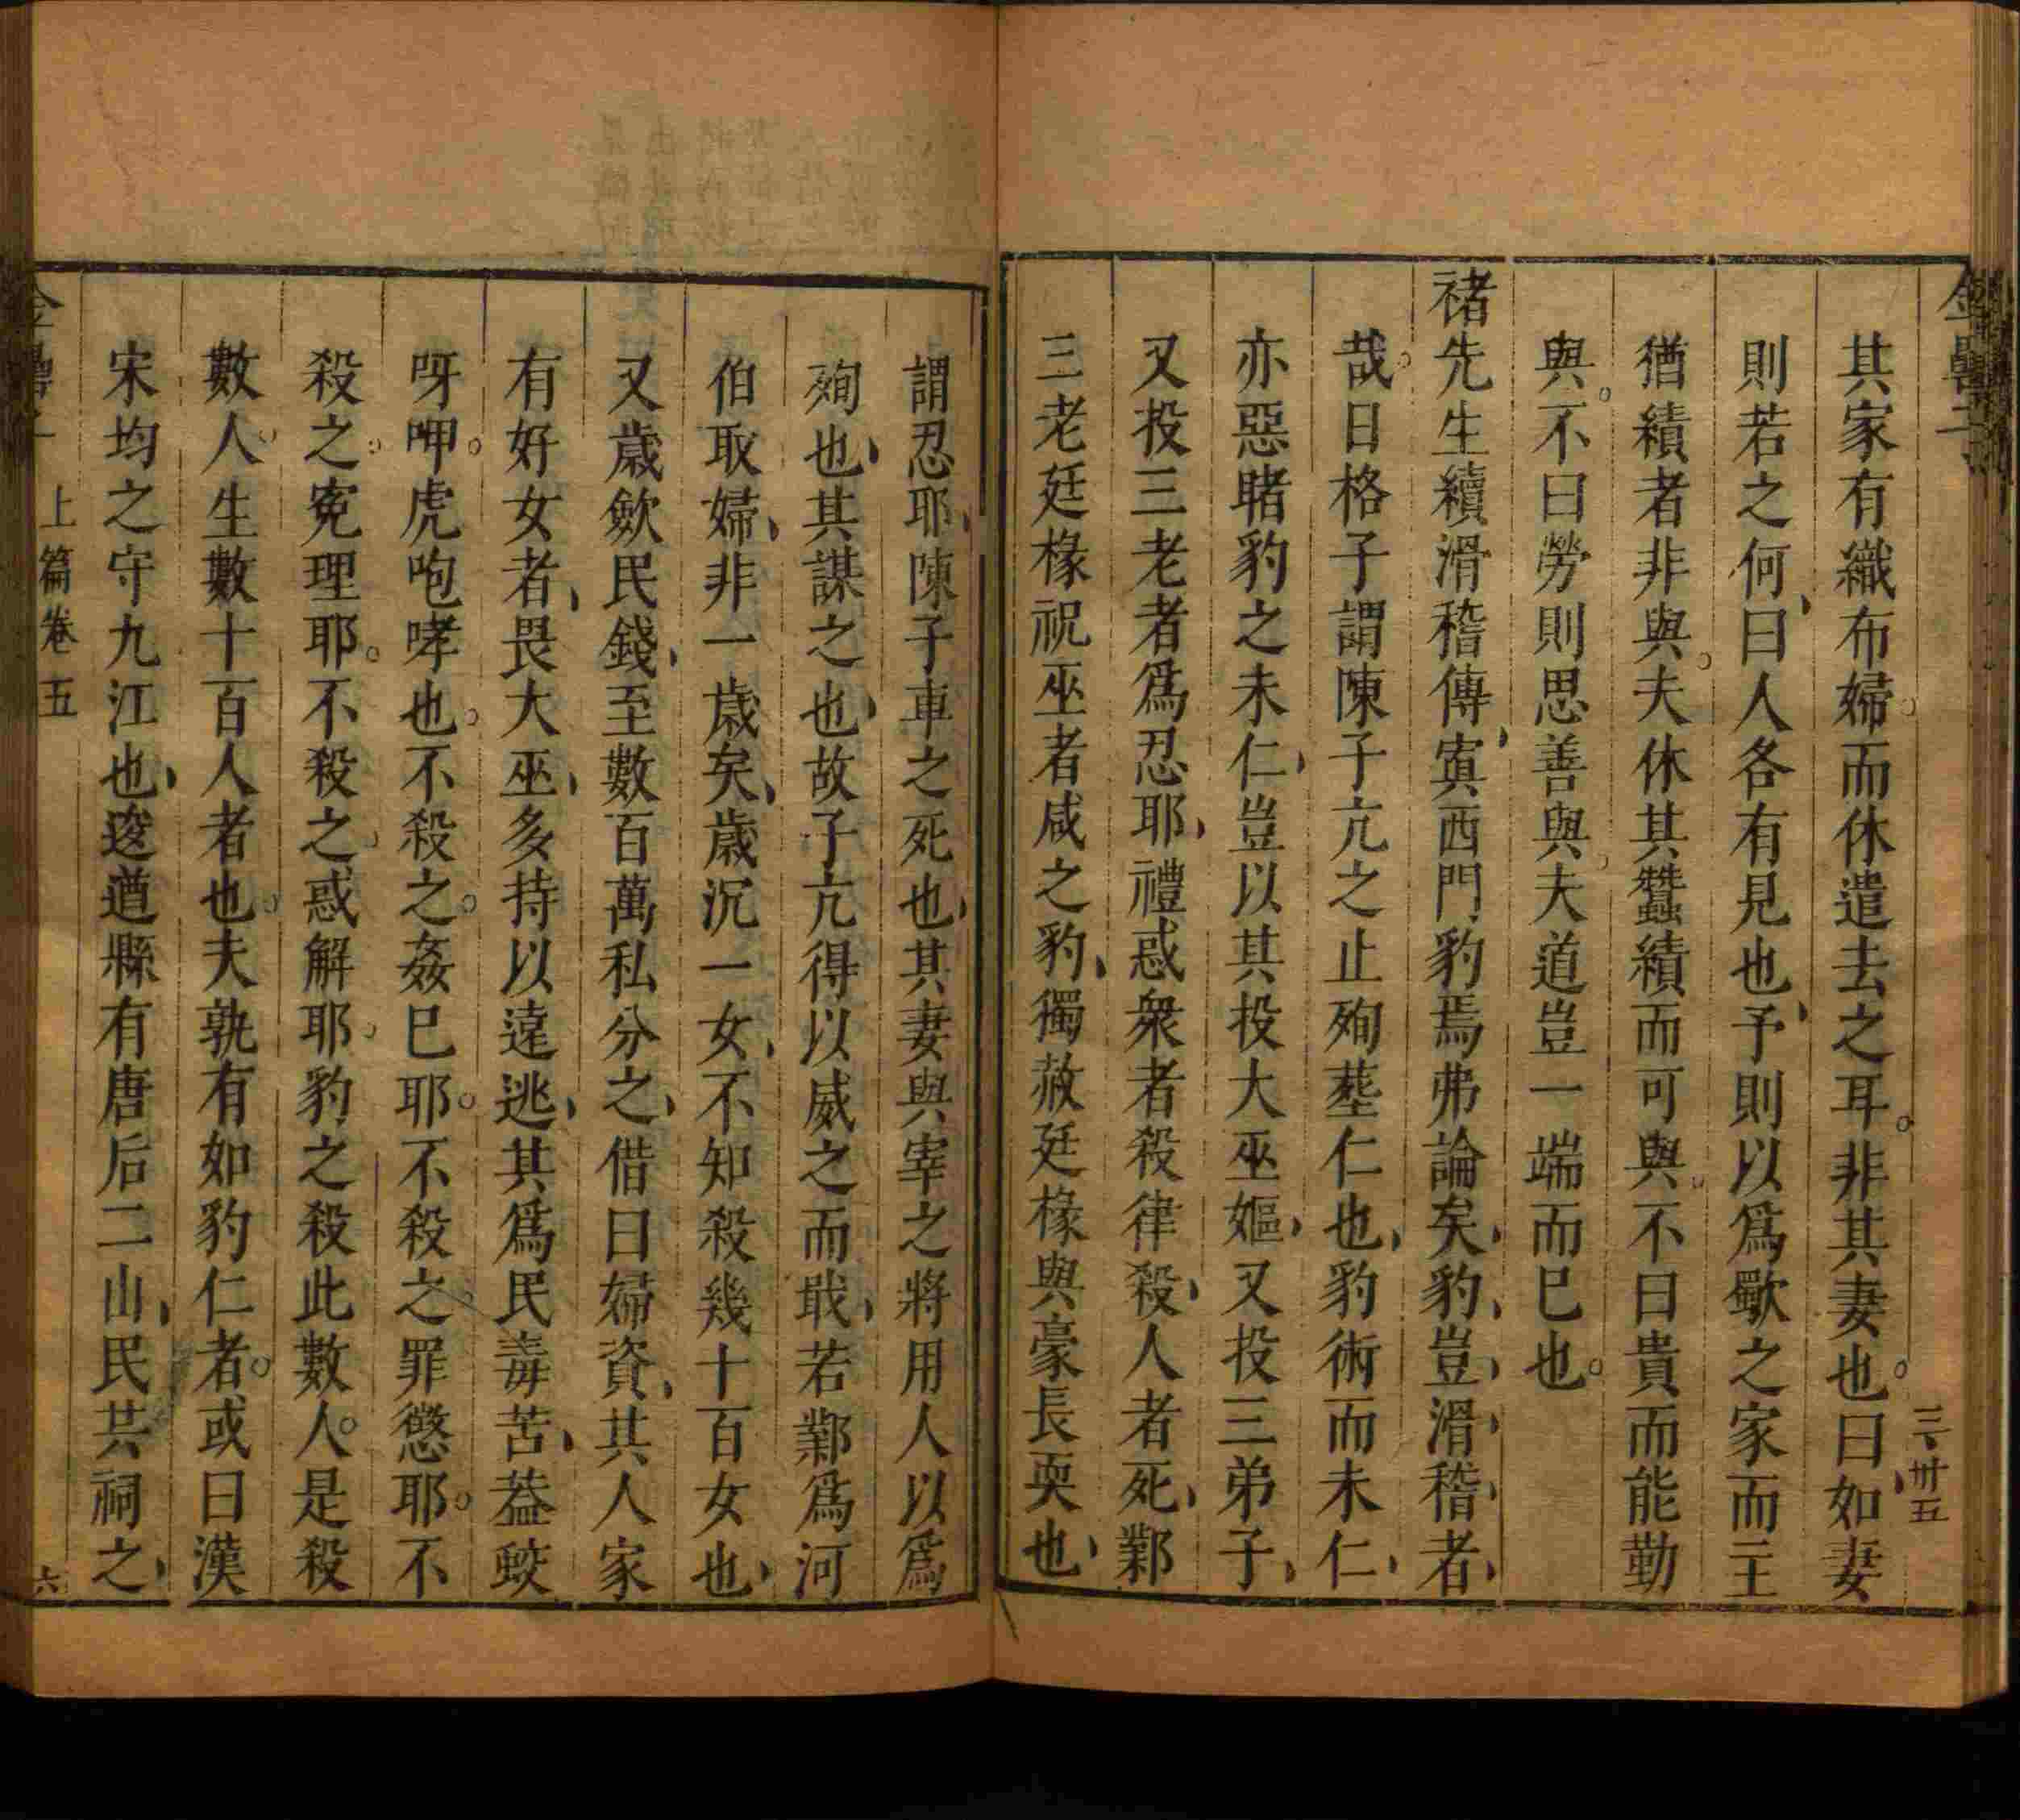 其家有織布婦而休遣去之耳非其妻也曰如妻
則若之何曰人各有見也予則以爲歜之家而主
猶績者非與夫休其蠶績而可與不曰貴而能勤
與不曰勞則思善與夫道豈一端而巳也
禇先生續滑稽傳寘西門豹焉弗論矣豹豈滑稽者
哉曰格子謂陳子亢之止殉塟仁也豹術而未仁
亦惡睹豹之未仁豈以其投大巫嫗又投三弟子
又投三老者爲忍耶禮惑衆者殺律殺人者死鄴
三老廷椽祝巫者咸之豹獨赦廷椽與豪長耎也
謂忍耶陳子車之死也其妻與宰之將用人以爲
殉也其謀之也故子亢得以威之而戢若鄴爲河
伯取婦非一歲矣歲沉一女不知殺幾十百女也
又歲歛民錢至數百萬私分之借曰婦資其人家
有好女者畏大巫多持以遠逃其爲民毒苦葢蛟
呀呷虎咆哮也不殺之姦巳耶不殺之罪懲耶不
殺之寃理耶不殺之惑解耶豹之殺此數人是殺
數人生數十百人者也夫孰有如豹仁者或曰漢
宋均之守九江也逡遒縣有唐后二山民共祠之
上篇卷五
六
三卅五